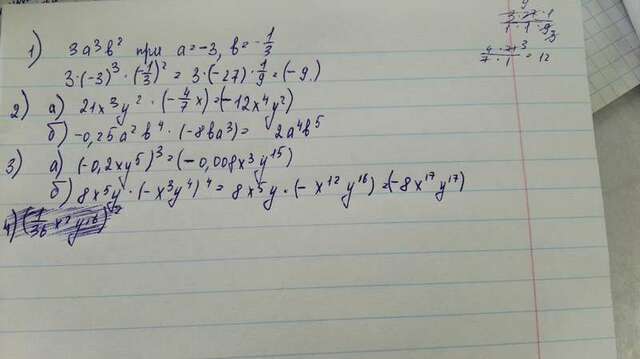 1) 3a³b² при a=-3, b=-1/3
3·(-3)³·(-1/3)² = 3·(-27)·1/9 = (-9.)
2) а) 21x³y²·(-4/7x)=(-12x⁴y²)
б) -0,25a²b⁴·(-8ba³)= 2a⁴b⁵
3) а) (-0,2xy⁵)³=(-0,008x³y¹⁵)
б) 8x⁵y·(-x³y⁴)⁴ = 8x⁵y·(-x¹²y¹⁶)=(-8x¹⁷y¹⁷)
4)
3·27·1
1·1·9
4·21³
7·1 = 12